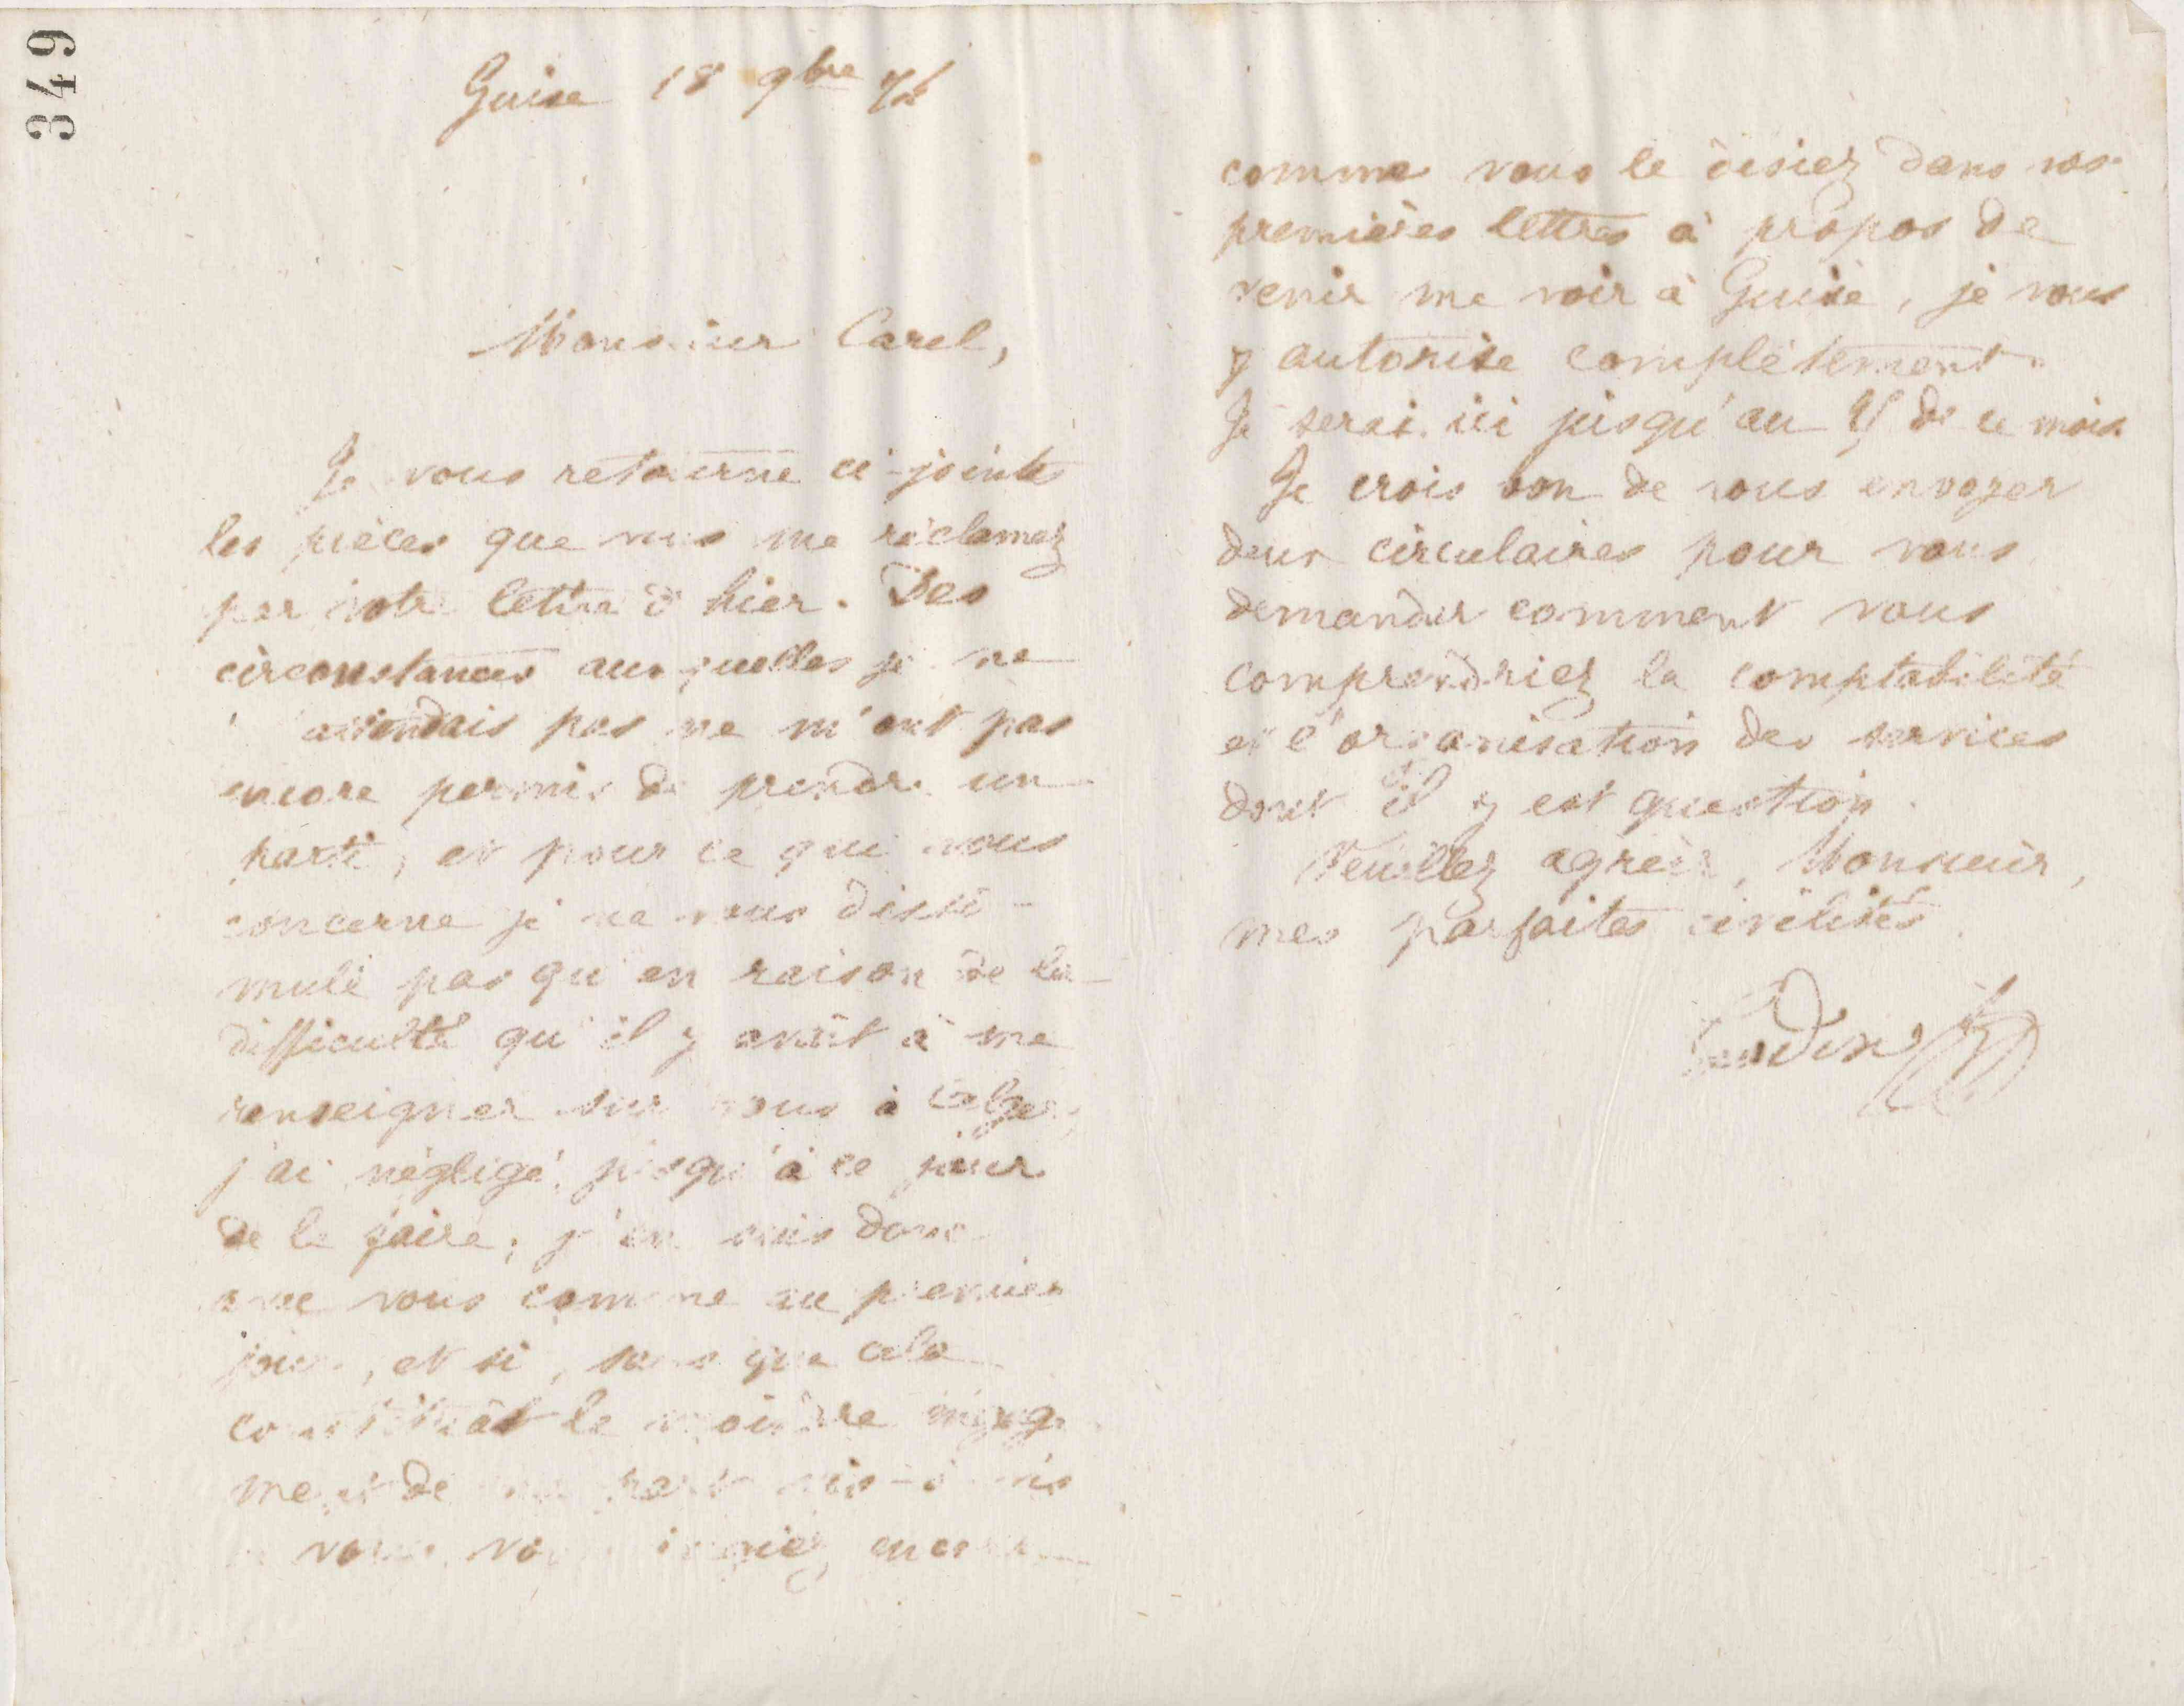 349
Guise 18 9bre 74
Monsieur Carel,
Je vous retourne ci-jointe
les pièces que vous me réclamez
par votre lettre d'hier. Des
circonstances auxquelles je ne
m'attendais pas ne m'ont pas
encore permis de prendre un
parti, et pour ce qui vous
concerne je ne vous dissi-
mule pas qu'en raison de la
difficulté qu'il y avait à me
renseigner sur vous à Alger,
j'ai négligé jusqu'à ce jour
de le faire; j'en suis donc
avec vous comme au premier
jour, et si, sans que cela
constituât le moindre engage
ment de ma part vis-à-vis
de vous, vous encore
comme vous le disiez dans vos
premières lettres à propos de
venir me voir à Guise, je vous
y autorise complètement.
Je serai ici jusqu'au de ce mois.
Je crois bon de vous envoyer
deux circulaires pour vous
demander comment vous
comprendriez la comptabilité
et l'organisation des services
dont il y est question.
Veuillez agréer, Monsieur,
mes parfaites civilités.
Godin